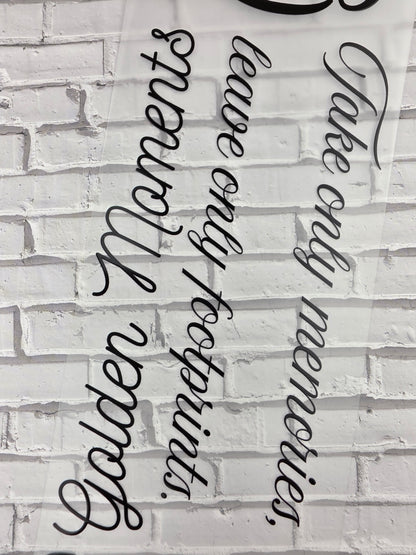 Take only memories,
leave only footprints.
Golden Moments